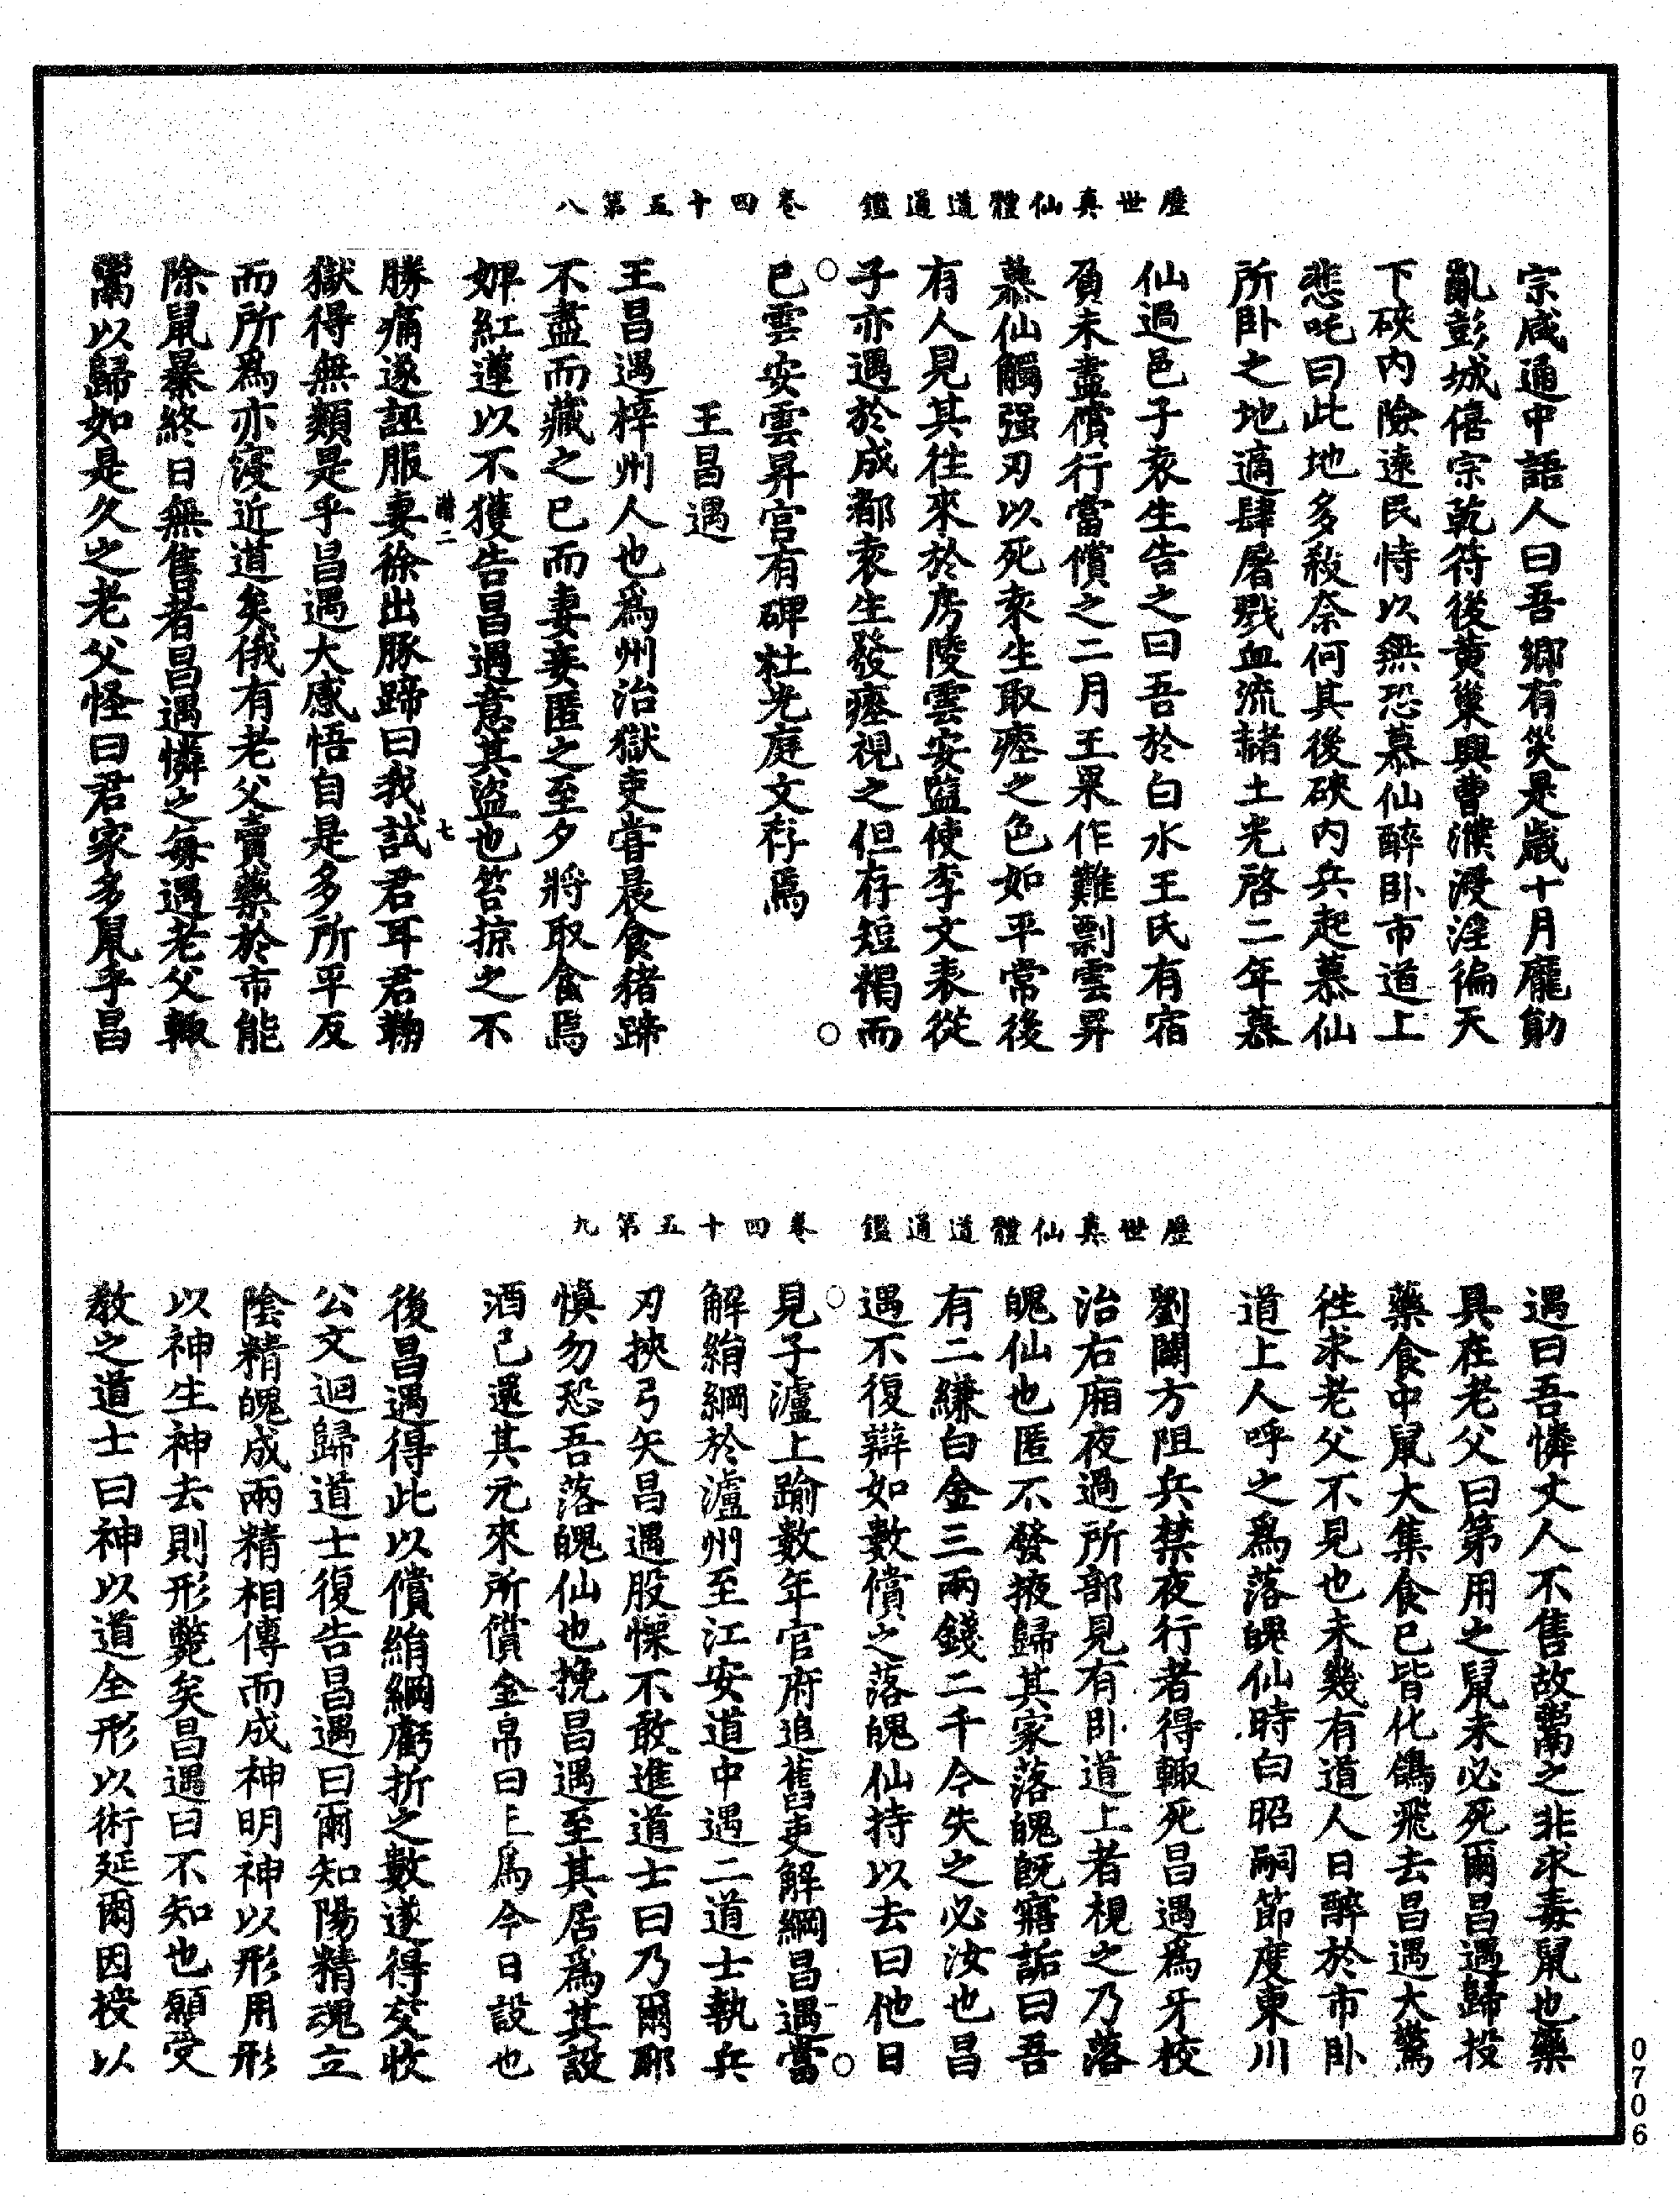 歷世真仙體道通鑑　卷四十五第八
宗咸通中語人曰吾鄉有災是歲十月龐勛
亂彭城僖宗乾符後黃巢興曹濮浸淫徧天
下硤内險遠民恃以無恐慕仙醉卧市道上
悲吒曰此地多殺奈何其後硤内兵起慕仙
所卧之地適肆屠戮血流赭土光啓二年慕
仙過邑子袁生告之曰吾於白水王氏有宿
負未盡償行當償之二月王果作難剽雲昇
慕仙觸强刃以死袁生取瘞之色如平常後
有人見其往來於房陵雲安監使李文表從
子亦遇於成都袁生發瘞視之但存短褐而
已雲安雲昇宫有碑杜光庭文存焉
王昌遇
王昌遇梓州人也爲州治獄吏嘗晨食猪蹄
不盡而藏之已而妻妾匿之至夕將取食焉
婢紅蓮以不獲告昌遇意其盗也笞掠之不
勝痛遂誣服妻徐出豚蹄曰我試君耳君鞫
獄得無類是乎昌遇大感悟自是多所平反
而所爲亦寖近道矣俄有老父賣藥於市能
除鼠暴終日無售者昌遇憐之每遇老父輙
鬻以歸如是久之老父怪曰君家多鼠乎昌
歷世真仙體道通鑑　卷四十五第九
遇曰吾憐丈人不售故鬻之非求毒鼠也藥
具在老父曰第用之鼠未必死爾昌遇歸投
藥食中鼠大集食已皆化鴿飛去昌遇大驚
往求老父不見也未幾有道人日醉於市卧
道上人呼之爲落魄仙時白昭嗣節度東川
劉闢方阻兵禁夜行者得輙死昌遇爲牙校
治右廂夜過所部見有卧道上者視之乃落
魄仙也匿不發掖歸其家落魄旣寤詬曰吾
有二縑白金三兩錢二千今失之必汝也昌
遇不復辯如數償之落魄仙持以去曰他日
見子瀘上踰數年官府追舊吏解綱昌遇當
解絹綱於瀘州至江安道中遇二道士執兵
刃挾弓矢昌遇股慄不敢進道士曰乃爾耶
慎勿恐吾落魄仙也挽昌遇至其居爲其設
酒已還其元來所償金帛曰上爲今日設也
後昌遇得此以償絹綱虧折之數遂得交收
公文迴歸道士復告昌遇曰爾知陽精魂立
陰精魄成兩精相傳而成神明神以形用形
以神生神去則形斃矣昌遇曰不知也願受
教之道士曰神以道全形以術延爾因授以
0706